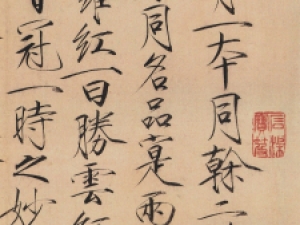 一本同榦二
同名品實兩
羅紅一曰勝雲紅
冠一時之妙